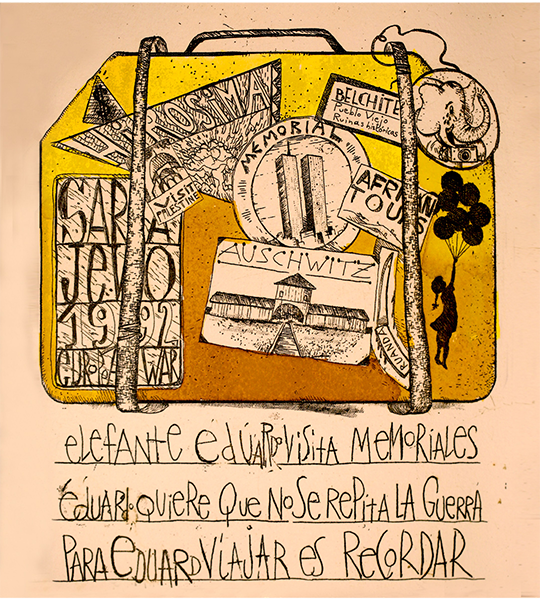 HIROSIMA
BELCHITE
Pueblo Viejo
Ruinas históricas
MEMORIAL
VISIT
PALESTINE
AFRICAN
TOUR
SARA
JEVO
1992
EUROPEAN WAR
AUSCHWITZ
RUANDA
elefante éduardo visita memoriales
éduardo quiere que no se repita la guerra
para eduard viajar es recordar